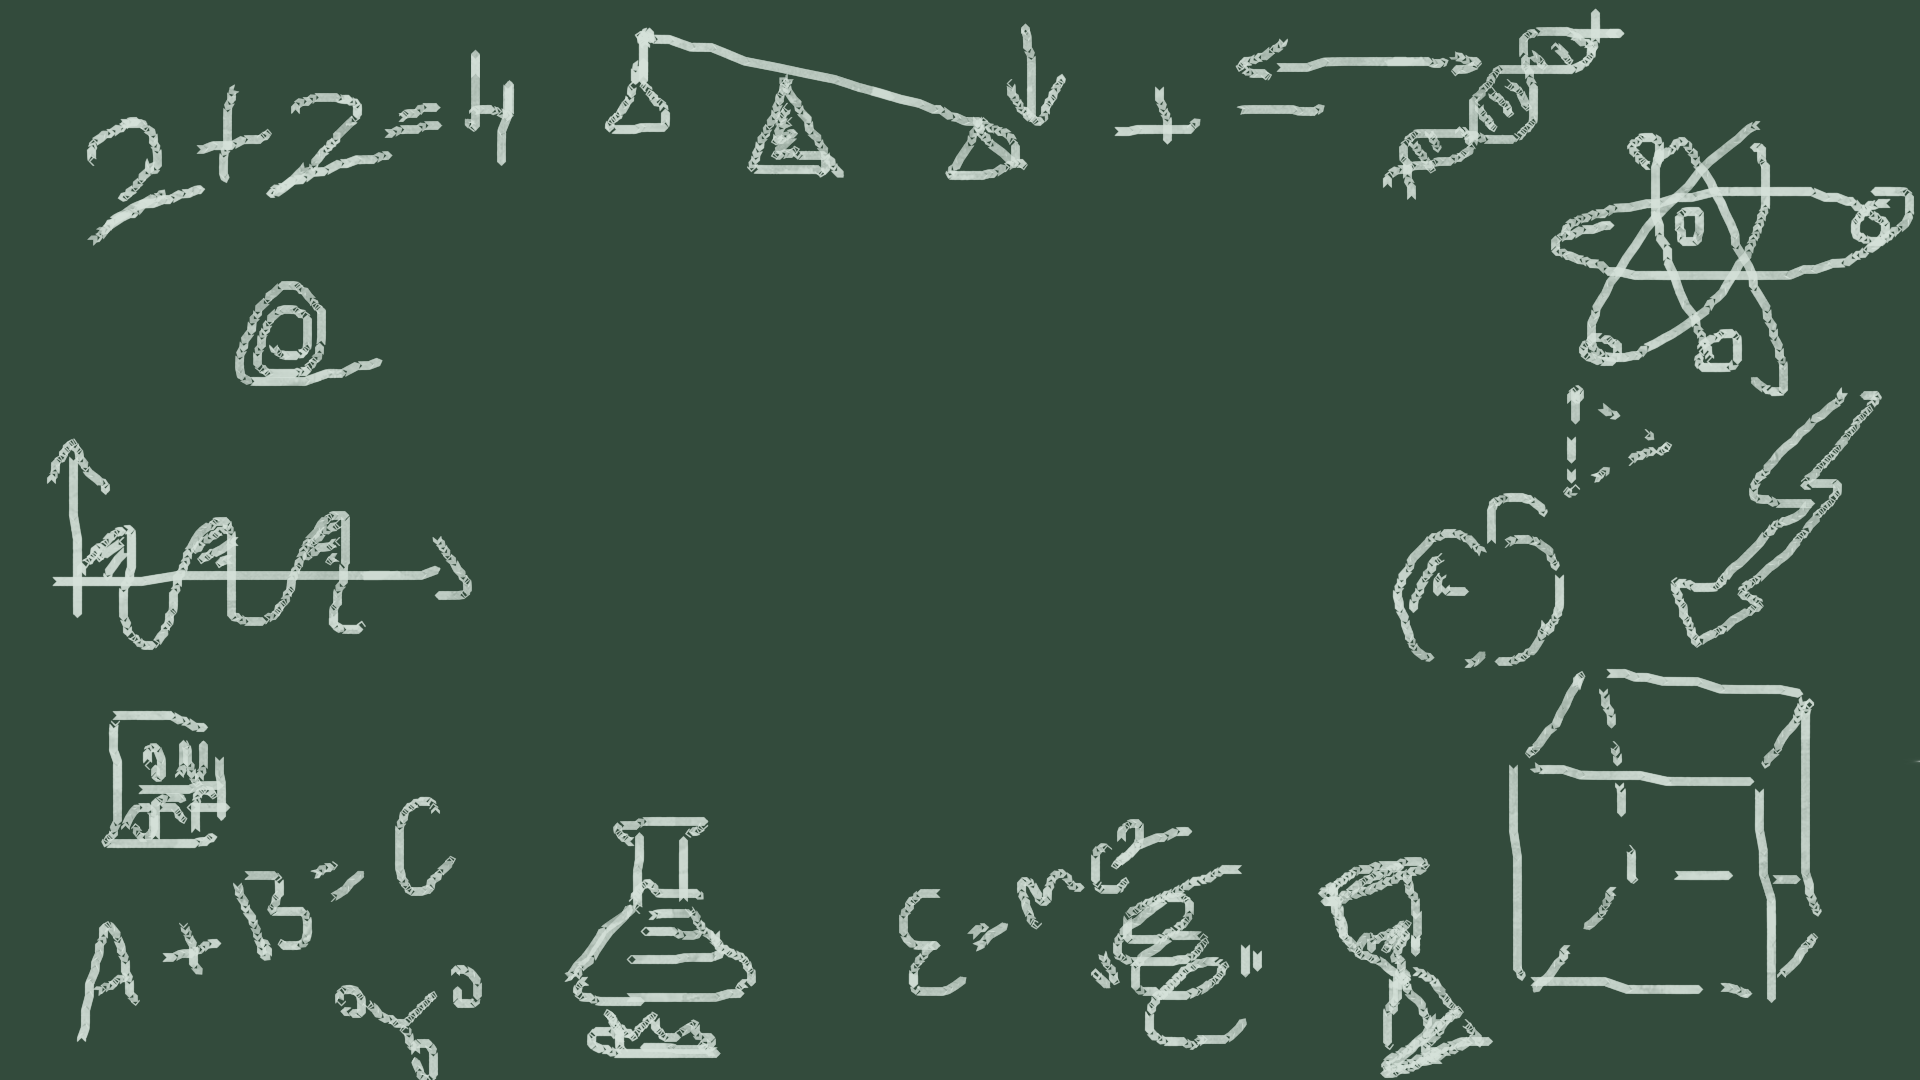 2+2=4
+ =
A+B=C
E=mc²